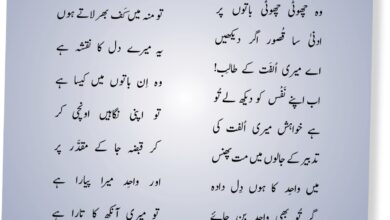 وہ چھوٹی چھوٹی باتوں پر
ادنیٰ سا قصور اگر دیکھیں
اے میری اُلفت کے طالب!
اب اپنے نَفْس کو دیکھ لے تُو
ہے خواہش میری اُلفت کی
تدبیر کے جالوں میں مت پھنس
میں واحِد کا ہوں دِل دادہ
گر تُو بھی واحِد بن جائے
تو منہ میں کَف بھر لاتے ہوں
یہ میرے دل کا نقشہ ہے
وہ اِن باتوں میں کیسا ہے
تو اپنی نگاہیں اونچی کر
کر قبضہ جا کے مقدَّر پر
اور واحِد میرا پیارا ہے
تو میری آنکھ کا تارا ہے